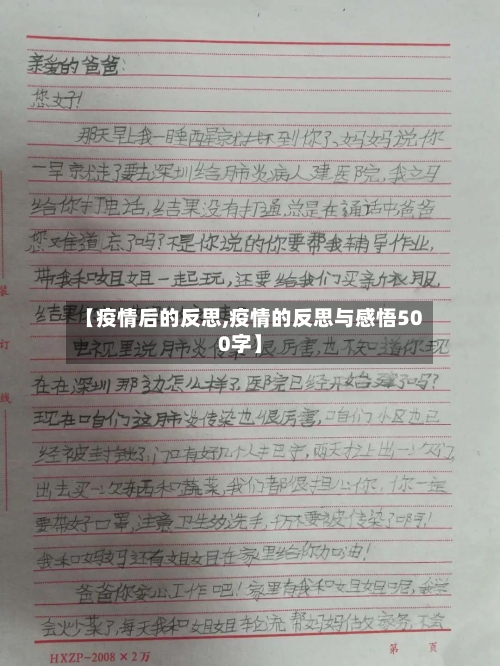 亲爱的爸爸:
您好!
那天早上我一睡醒就找不到你了、妈妈说你
一早就走了要去深圳给肺炎病人建医院,我立马
给你打电话,结果没有打通,总是在通话中爸爸
您难道忘了吗?不是你说的你要帮我辅导作业,
带我和姐姐一起玩,还要给我们买新衣服,
结果
【疫情后的反思,疫情的反思与感悟50
0字】
电视里说肺炎 很厉害,也不知道你现
在在深圳那边怎么样了,医院已经开始建了吗?
现在咱们这肺炎传染也很厉害,咱们小区也已
经被封锁了,门口有好几个人把守,两天才让出一次门
出去买一次东西和蔬菜,我们都很担心你,你一定
要带好口罩,注意卫生勤洗手,千万不要被传染了呀!
我和妈妈还有姐姐在家里给你加油!
爸爸你安心工作吧!家里有我和姐姐呢,我
会炒菜了,每天我和姐姐轮流帮妈妈做家务,不会
装
订
线
HXZP-2008×2万
第 页